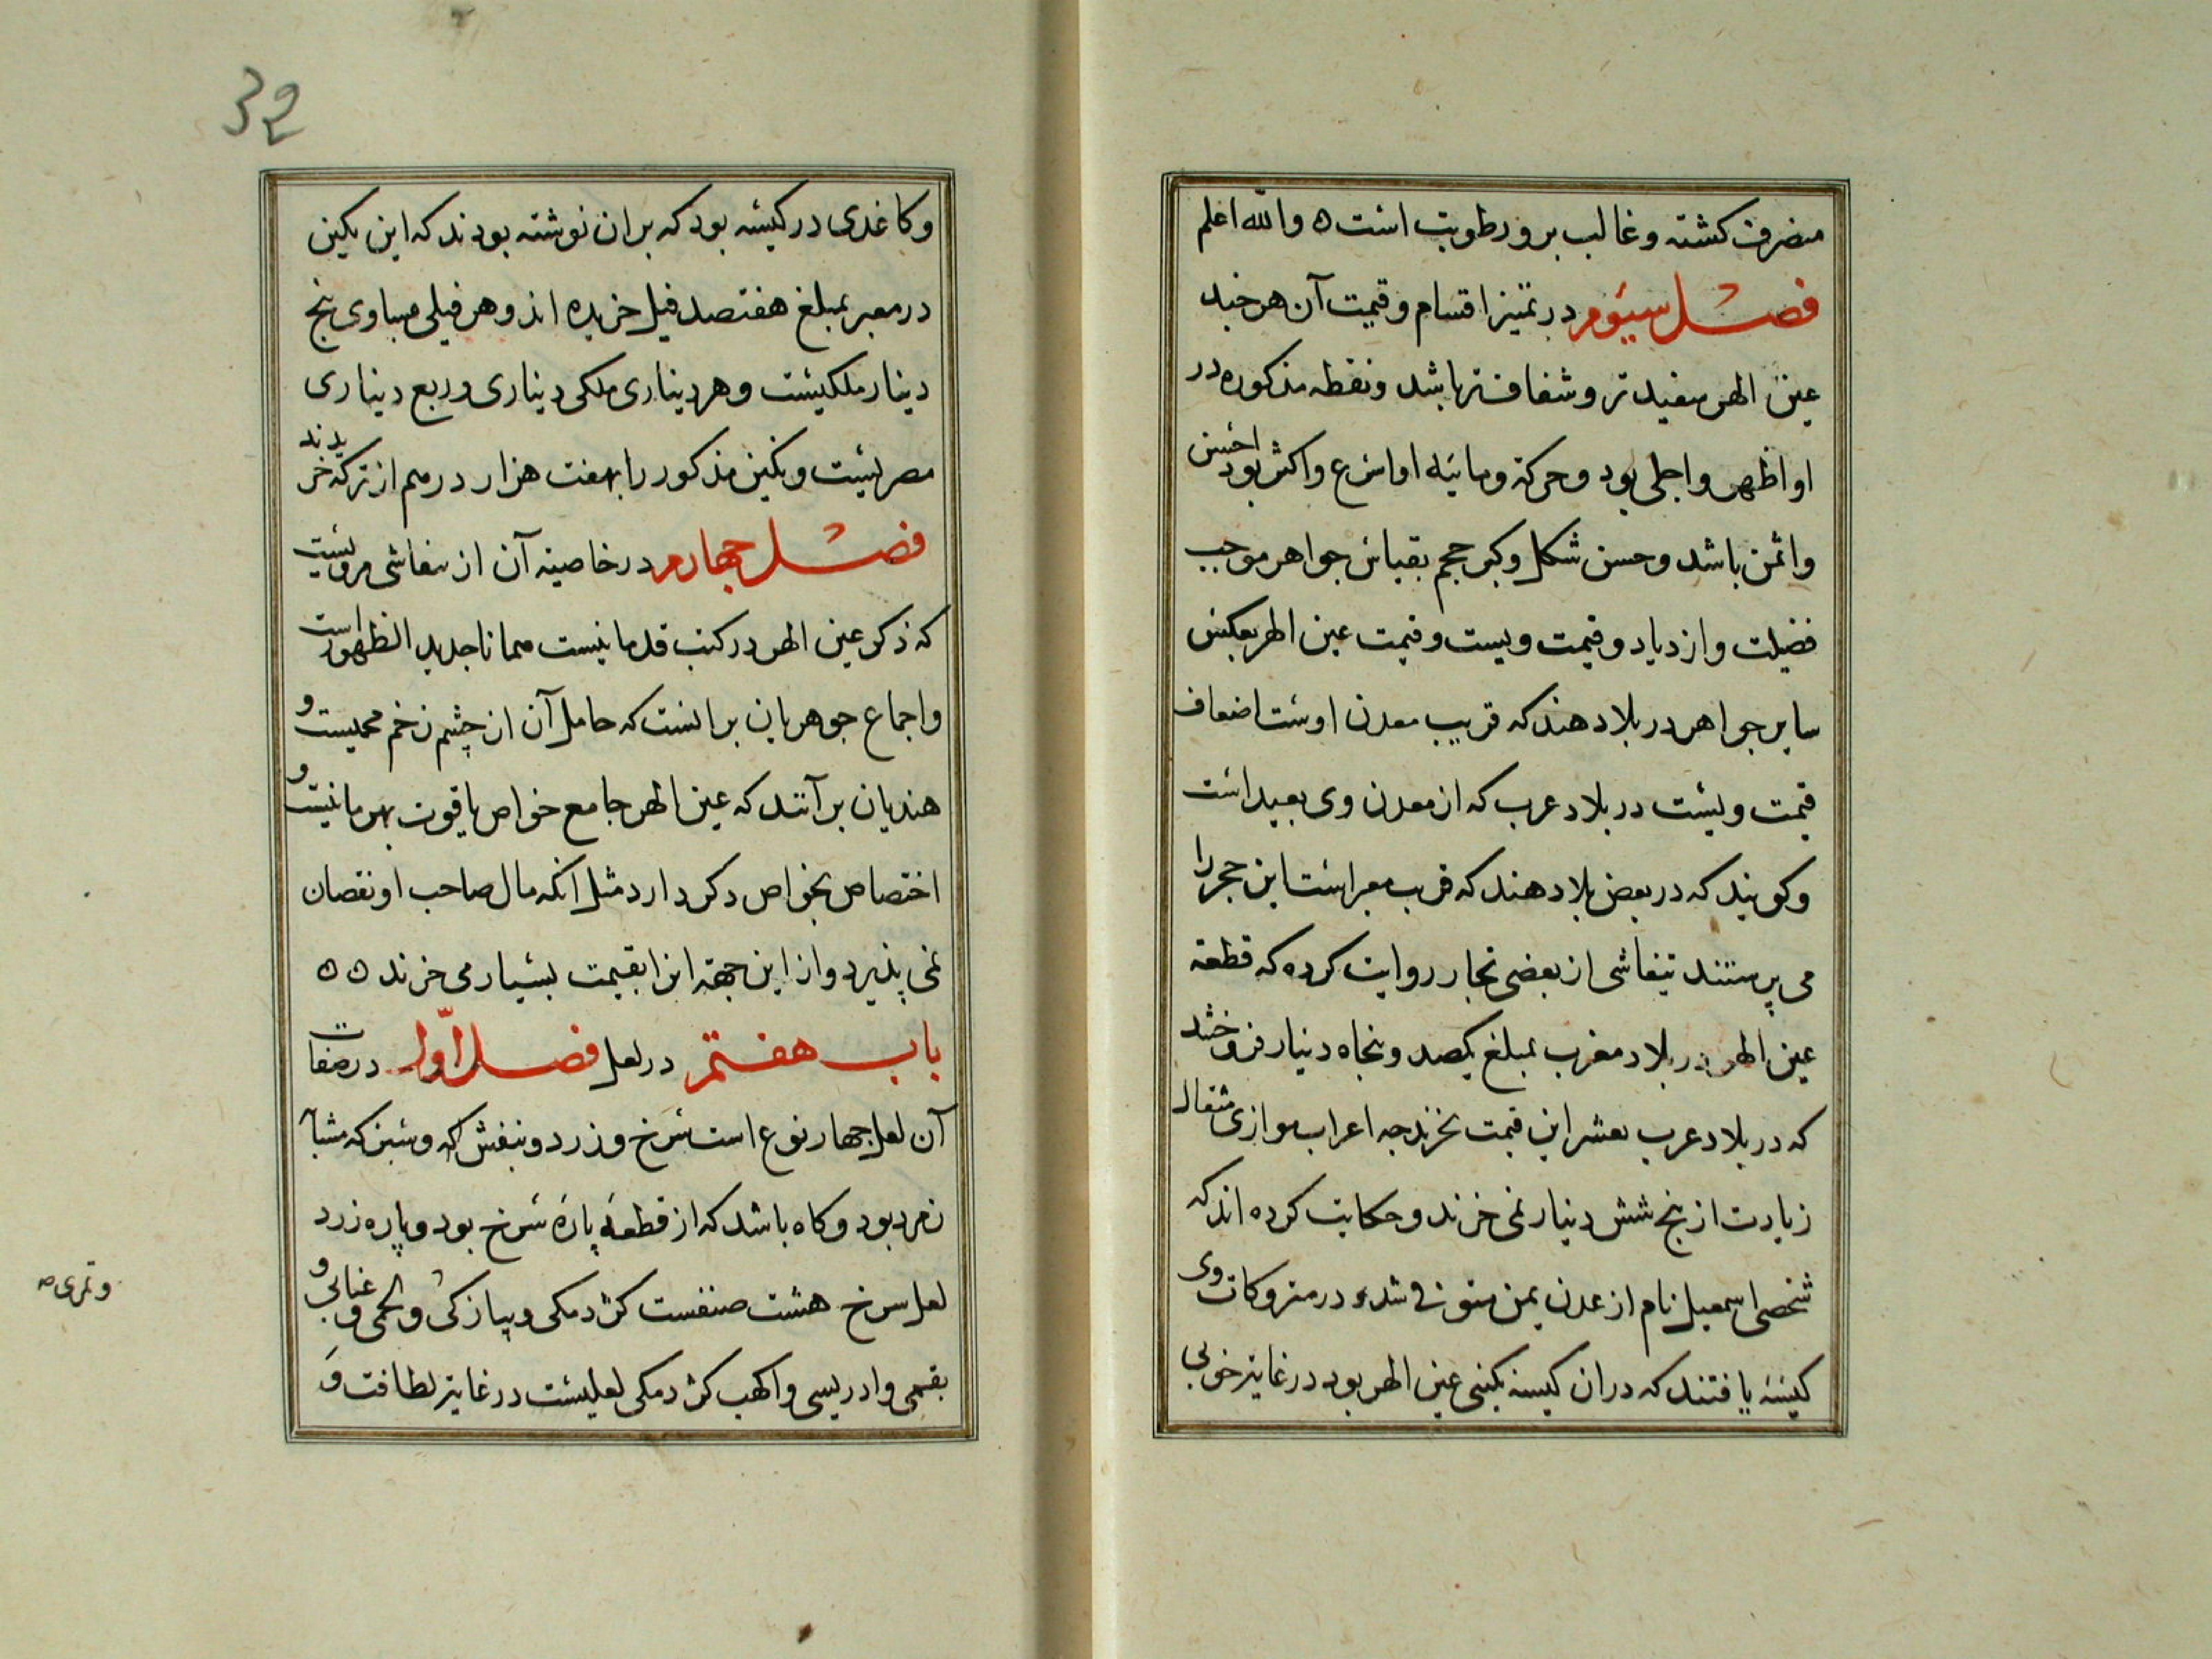 منصرف کشته و غالب برو رطوبت است ه والله اعلم
فصل سیوم در تمیز اقسام و قیمت آن هر جند
عین الهر سفید تر و شفاف تر باشد و نقطه مذکوره در
او اظهر و اجلی بود و حرکة ومائیه او اسرع و اکثر بود احسن
و اثمن باشد و حسن شکل و کبر حجم بقیاس جواهر موجب
فضیلت و ازدیاد و قیمت ویست و قیمت عین الهر بعکس
سایر جواهر در بلاد هند که قریب معدن اوست اضعاف
قیمت ویست در بلاد عرب که از معدن وی بعید است
و کویند که در بعض بلاد هند که قرب معبر است این حجر را
می پرستند تیفاشی از بعضی تجار روایت کرده که قطعة
عین الهر در بلاد مغرب بمبلغ یکصد و بنجاه دینار فروخته شد
که در بلاد عرب بعشر این قیمت نخرند جه اعراب موازی مثقال
زیادت از بنج شش دینار نمی خرند و حکایت کرده اند که
شخصی اسمعیل نام از عدن یمن متوفی شد در متروکات وی
کیسه یافتند که دران کیسه نکینی عین الهر بود در غایة خوبی
32
و کاغدی در کیسه بود که بران نوشته بودند که این نکین
در معبر بمبلغ هفتصد فیل خریده اند و هر فیلی مساوی بنج
دینار ملکیست و هر دیناری ملکی دیناری و ربع دیناری
مصریست و نکین مذکور را بهفت هزار درهم از ترکه خریدند
فصل جهارم در خاصیة آن از تیفاشی مرویست
که ذکر عین الهر در کتب قدما نیست همانا جدید الظهور است
و اجماع جوهریان برانست که حامل آن از چشم زخم محمیست و
هندیان برآنند که عین الهر جامع خواص یاقوت بهرمانیست و
اختصاص بخواص دکر دارد مثل انکه مال صاحب او نقصان
نمی پذیرد و از این جهة انرا بقیمت بسیار می خرند ه ه
باب هفتم در لعل فصل اول در صفات
آن لعل جهار نوع است سرخ و زرد و بنفش که و سبز که مشابه
زمرد بود و کاه باشد که از قطعه پارۀ سرخ بود و پاره زرد
لعل سرخ هشت صنفست کژدمکی و پیازکی و لحمی و عنابی و
بقمی و ادریسی و اکهب کژدمکی لعلیست در غایة لطافت و
وتمری صه